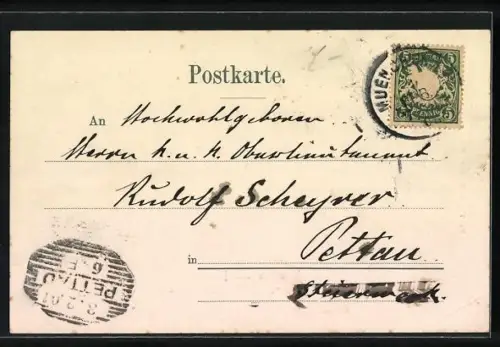 Postkarte.
An Hochwohlgeboren
Herrn K. u. K. Oberlieutenant
Rudolf Scheyrer
in Pettau
Steiermark.
MUEN
5 5
PETTAU